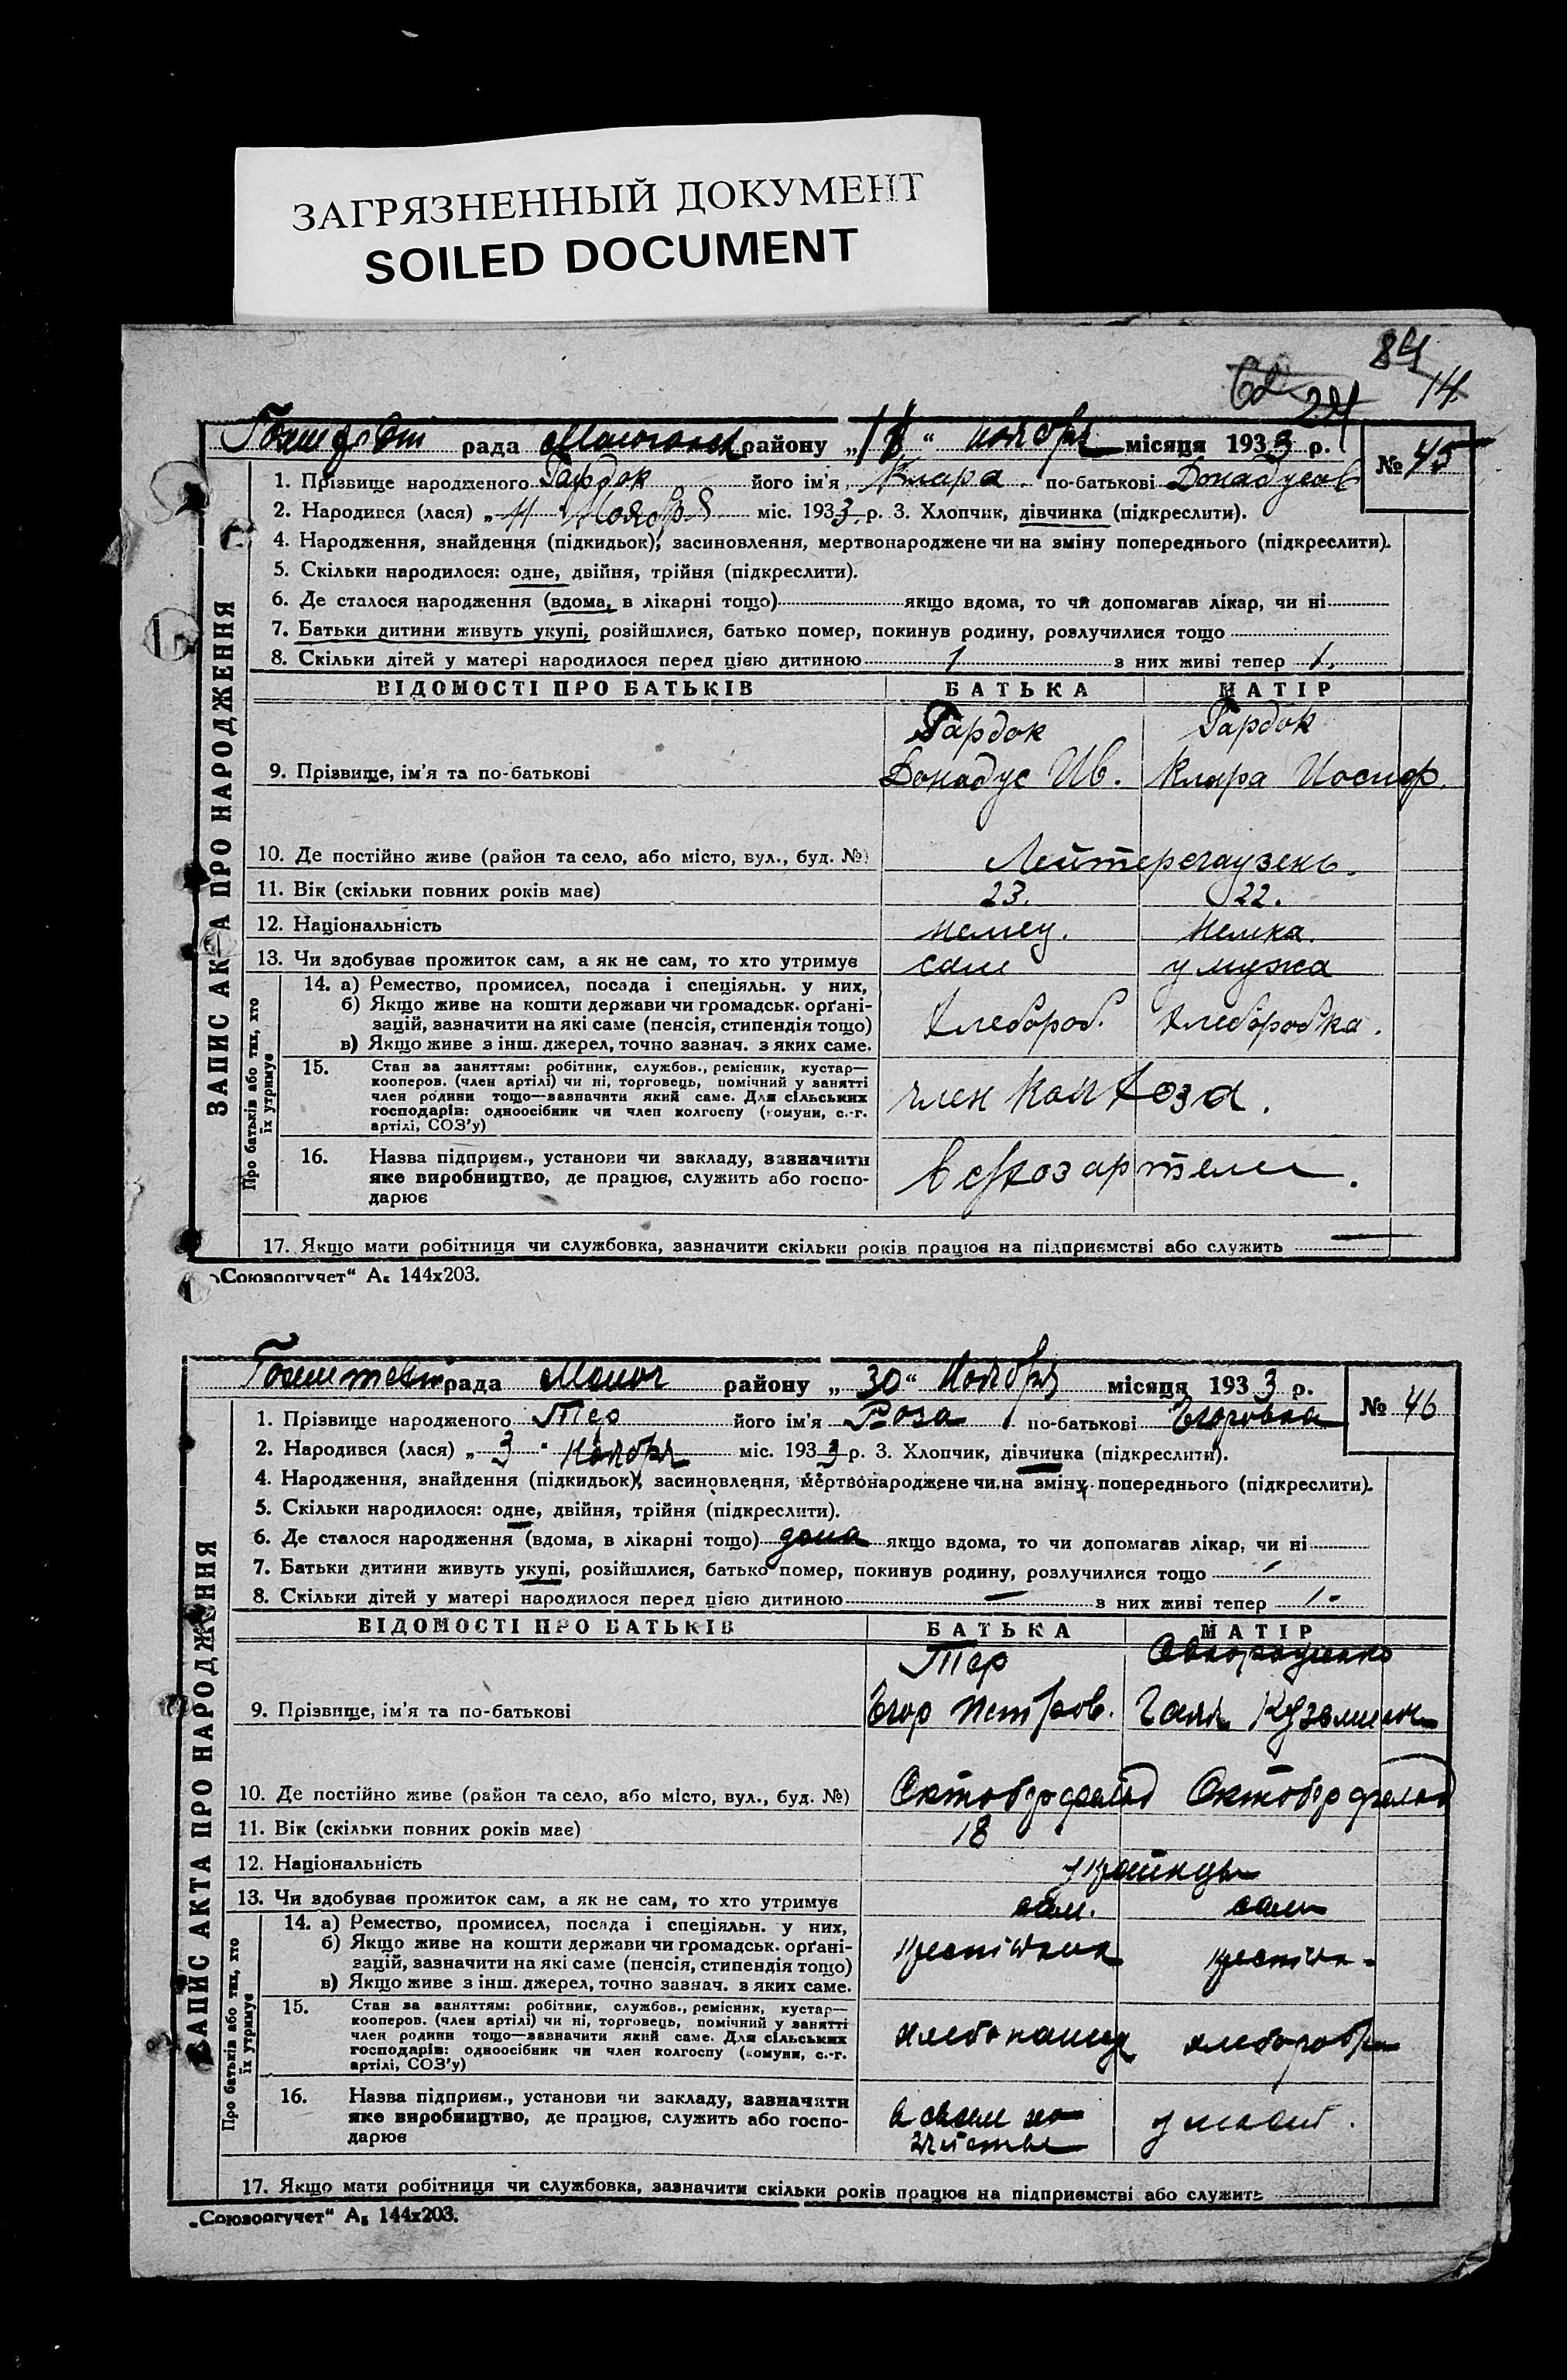 ЗАГРЯЗНЕННЫЙ ДОКУМЕНТ
SOILED DOCUMENT
84
14
24
рада району „ “ ноября місяця 1933 р.
№ 45
1. Прізвище народженого Гардок його ім'я Клара по-батькові
2. Народився (лася) „ 11 Ноября міс. 1933 р. 3. Хлопчик, дівчинка (підкреслити).
4. Народження, знайдення (підкидьок), засиновлення, мертвонароджене чи на зміну попереднього (підкреслити).
5. Скільки народилося: одне, двійня, трійня (підкреслити).
6. Де сталося народження (вдома, в лікарні тощо) якщо вдома, то чи допомагав лікар, чи ні
7. Батьки дитини живуть укупі, розійшлися, батько помер, покинув родину, розлучилися тощо
8. Скільки дітей у матері народилося перед цією дитиною 1 з них живі тепер 1.
ЗАПИС АКТА ПРО НАРОДЖЕННЯ
ВІДОМОСТІ ПРО БАТЬКІВ БАТЬКА МАТІР
Гардок Гардок
9. Прізвище, ім'я та по-батькові Донадус Ив. Клара Иосиф.
10. Де постійно живе (район та село, або місто, вул., буд. №) Лейтерсгаузень.
11. Вік (скільки повних років має) 23. 22.
12. Національність немец. немка.
13. Чи здобуває прожиток сам, а як не сам, то хто утримує сам у мужа
Про батьків або тих, хто їх утримує
14. а) Ремество, промисел, посада і спеціяльн. у них,
б) Якщо живе на кошти держави чи громадськ. орґані-
зацій, зазначити на які саме (пенсія, стипендія тощо) хлебороб. хлеборобка.
в) Якщо живе з інш. джерел, точно зазнач. з яких саме.
15. Стан за заняттям: робітник, службов., ремісник, кустар—
кооперов. (член артілі) чи ні, торговець, помічний у занятті
член родини тощо—зазначити який саме. Для сільських
господарів: одноосібник чи член колгоспу (комуни, с.-г. член колхоза.
артілі, СОЗ'у)
16. Назва підприєм., установи чи закладу, зазначити
яке виробництво, де працює, служить або госпо- в с/хоз артели.
дарює
17. Якщо мати робітниця чи службовка, зазначити скільки років працює на підприємстві або служить —
„Союзоргучет“ А₅ 144х203.
рада району „ 30 “ Ноября місяця 1933 р.
№ 46
1. Прізвище народженого Тер його ім'я Роза по-батькові Егоровна
2. Народився (лася) „ 3 “ Ноября міс. 1933 р. 3. Хлопчик, дівчинка (підкреслити).
4. Народження, знайдення (підкидьок), засиновлення, мертвонароджене чи на зміну попереднього (підкреслити).
5. Скільки народилося: одне, двійня, трійня (підкреслити).
6. Де сталося народження (вдома, в лікарні тощо) дома якщо вдома, то чи допомагав лікар, чи ні
7. Батьки дитини живуть укупі, розійшлися, батько помер, покинув родину, розлучилися тощо —
8. Скільки дітей у матері народилося перед цією дитиною — з них живі тепер 1-
ЗАПИС АКТА ПРО НАРОДЖЕННЯ
ВІДОМОСТІ ПРО БАТЬКІВ БАТЬКА МАТІР
Тер
9. Прізвище, ім'я та по-батькові Егор Петров.
10. Де постійно живе (район та село, або місто, вул., буд. №) Октоберфельд Октоберфельд
11. Вік (скільки повних років має) 18
12. Національність українцы
13. Чи здобуває прожиток сам, а як не сам, то хто утримує сам. сам
Про батьків або тих, хто їх утримує
14. а) Ремество, промисел, посада і спеціяльн. у них,
б) Якщо живе на кошти держави чи громадськ. орґані-
зацій, зазначити на які саме (пенсія, стипендія тощо)
в) Якщо живе з інш. джерел, точно зазнач. з яких саме.
15. Стан за заняттям: робітник, службов., ремісник, кустар—
кооперов. (член артілі) чи ні, торговець, помічний у занятті
член родини тощо—зазначити який саме. Для сільських
господарів: одноосібник чи член колгоспу (комуни, с.-г.
артілі, СОЗ'у)
16. Назва підприєм., установи чи закладу, зазначити
яке виробництво, де працює, служить або госпо-
дарює
17. Якщо мати робітниця чи службовка, зазначити скільки років працює на підприємстві або служить
„Союзоргучет“ А₅ 144х203.